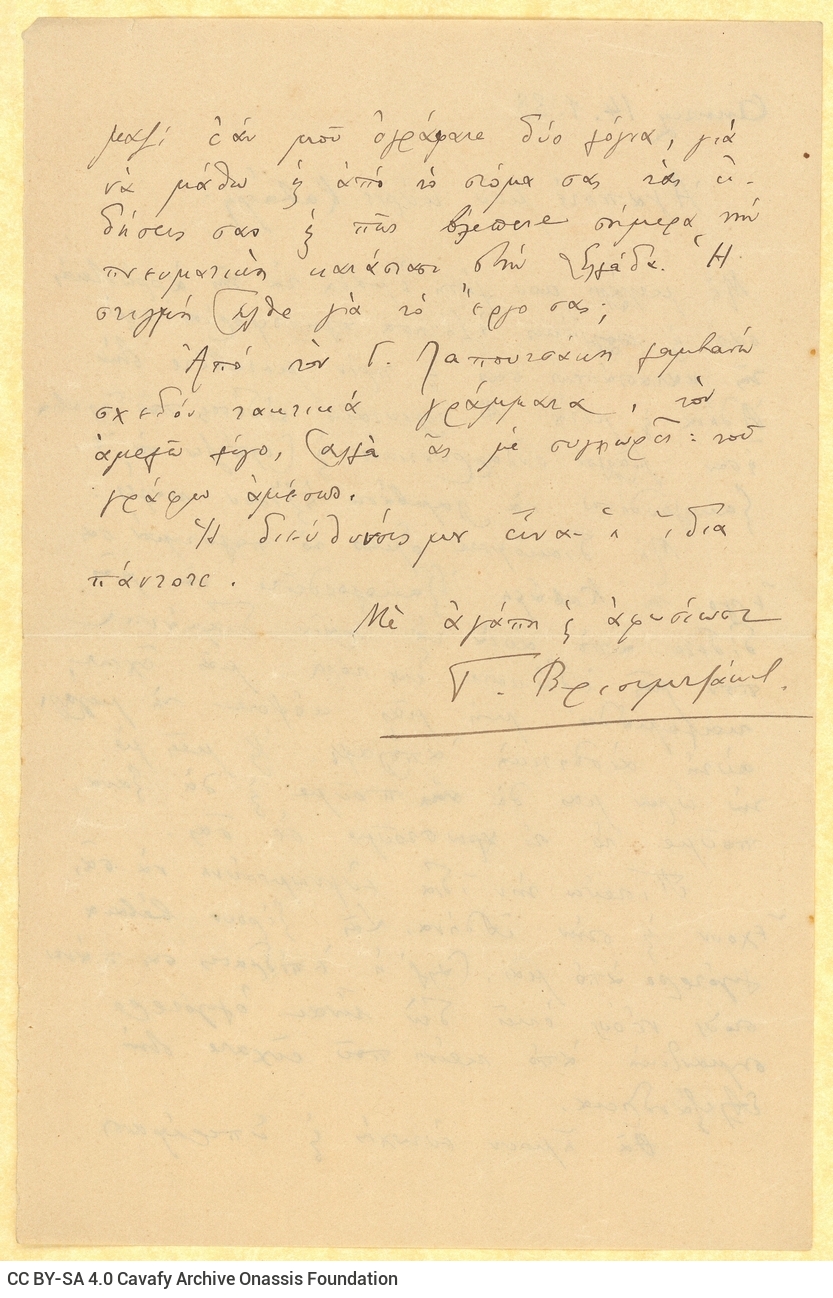 μαζί ἐάν μοῦ ἐγράφατε δύο λόγια, γιά
νά μάθω ϗ ἀπό τό στόμα σας τάς εἰ-
δήσεις σας ϗ πῶς βλέπετε σήμερα τήν
πνευματικήν κατάστασι στήν Ἑλλάδα. Ἡ
στιγμή ἦλθε γιά τό ἔργο σας;
Ἀπό τόν Γ. Παπουτσάκη λαμβάνω
σχεδόν τακτικά γράμματα, τόν
ἀμελῶ λίγο, ἀλλά ἄς μέ συγχωρεῖ: τοῦ
γράφω ἀμέσως.
Ἡ διεύθυνσίς μου εἶναι ἡ ἴδια
πάντοτε.
Μέ ἀγάπη ϗ ἀφοσίωσι
Γ. Βρισιμιτζάκης.
CC BY-SA 4.0 Cavafy Archive Onassis Foundation